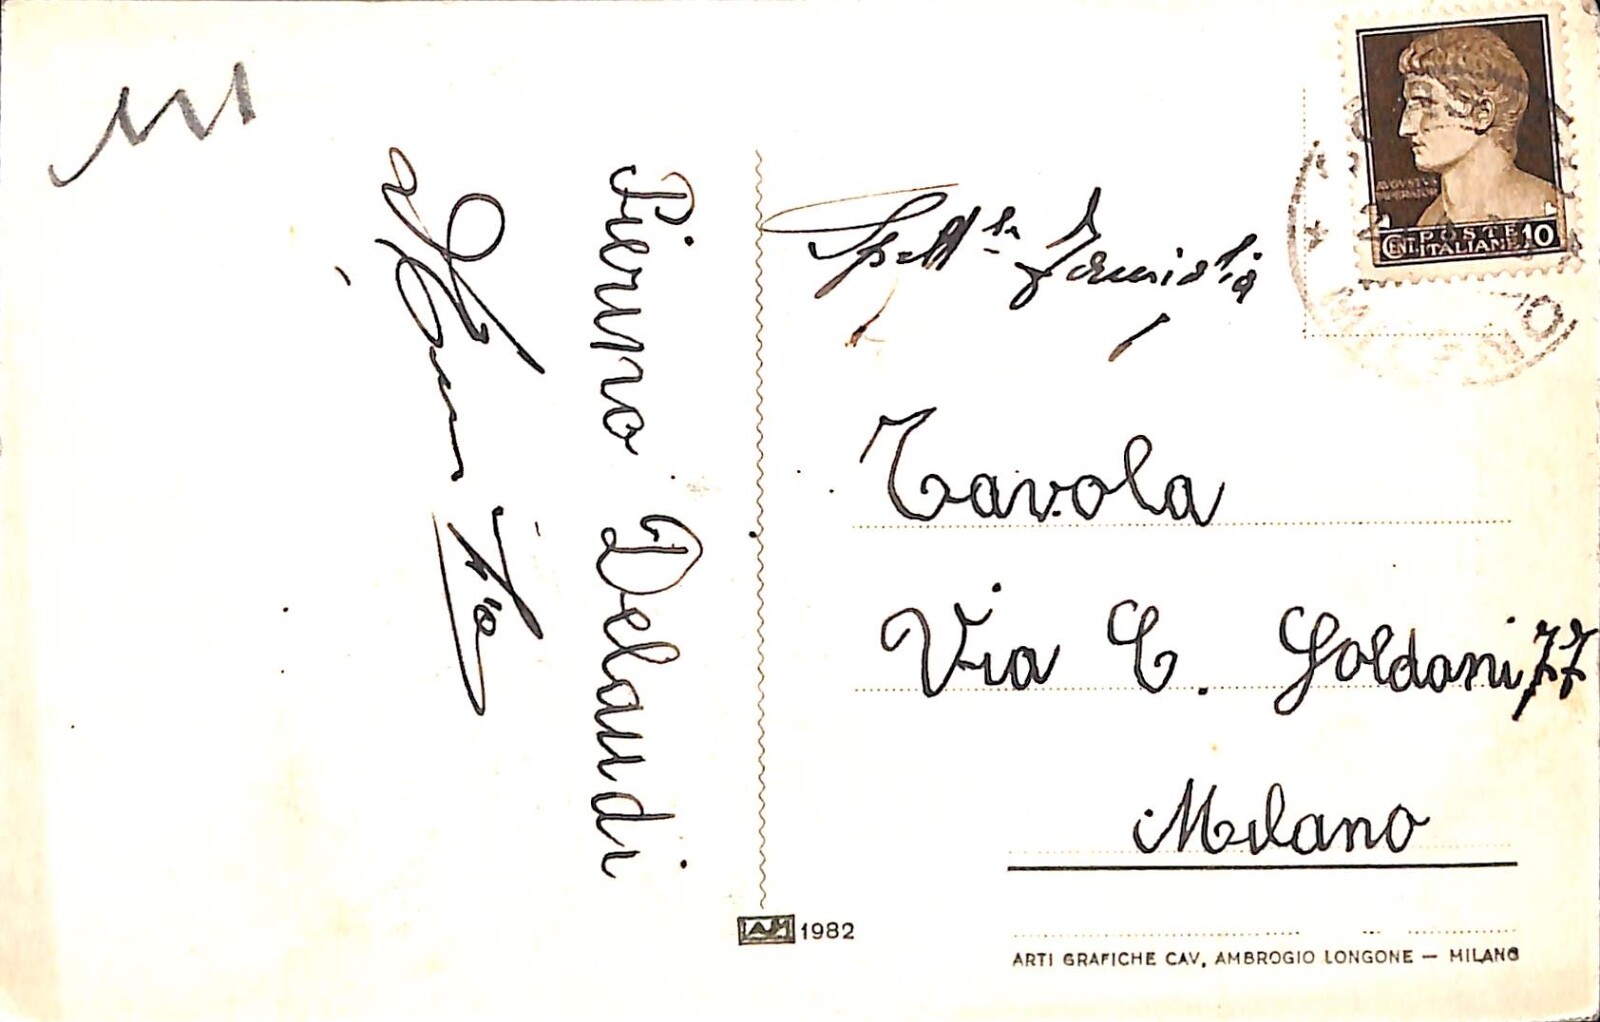 Pierino Delaudi
Spett.le Famiglia
Tavola
Via C. Goldoni 77
Milano
AVGVSTVS
POSTE
CENT. ITALIANE 10
1982
ARTI GRAFICHE CAV. AMBROGIO LONGONE — MILANO